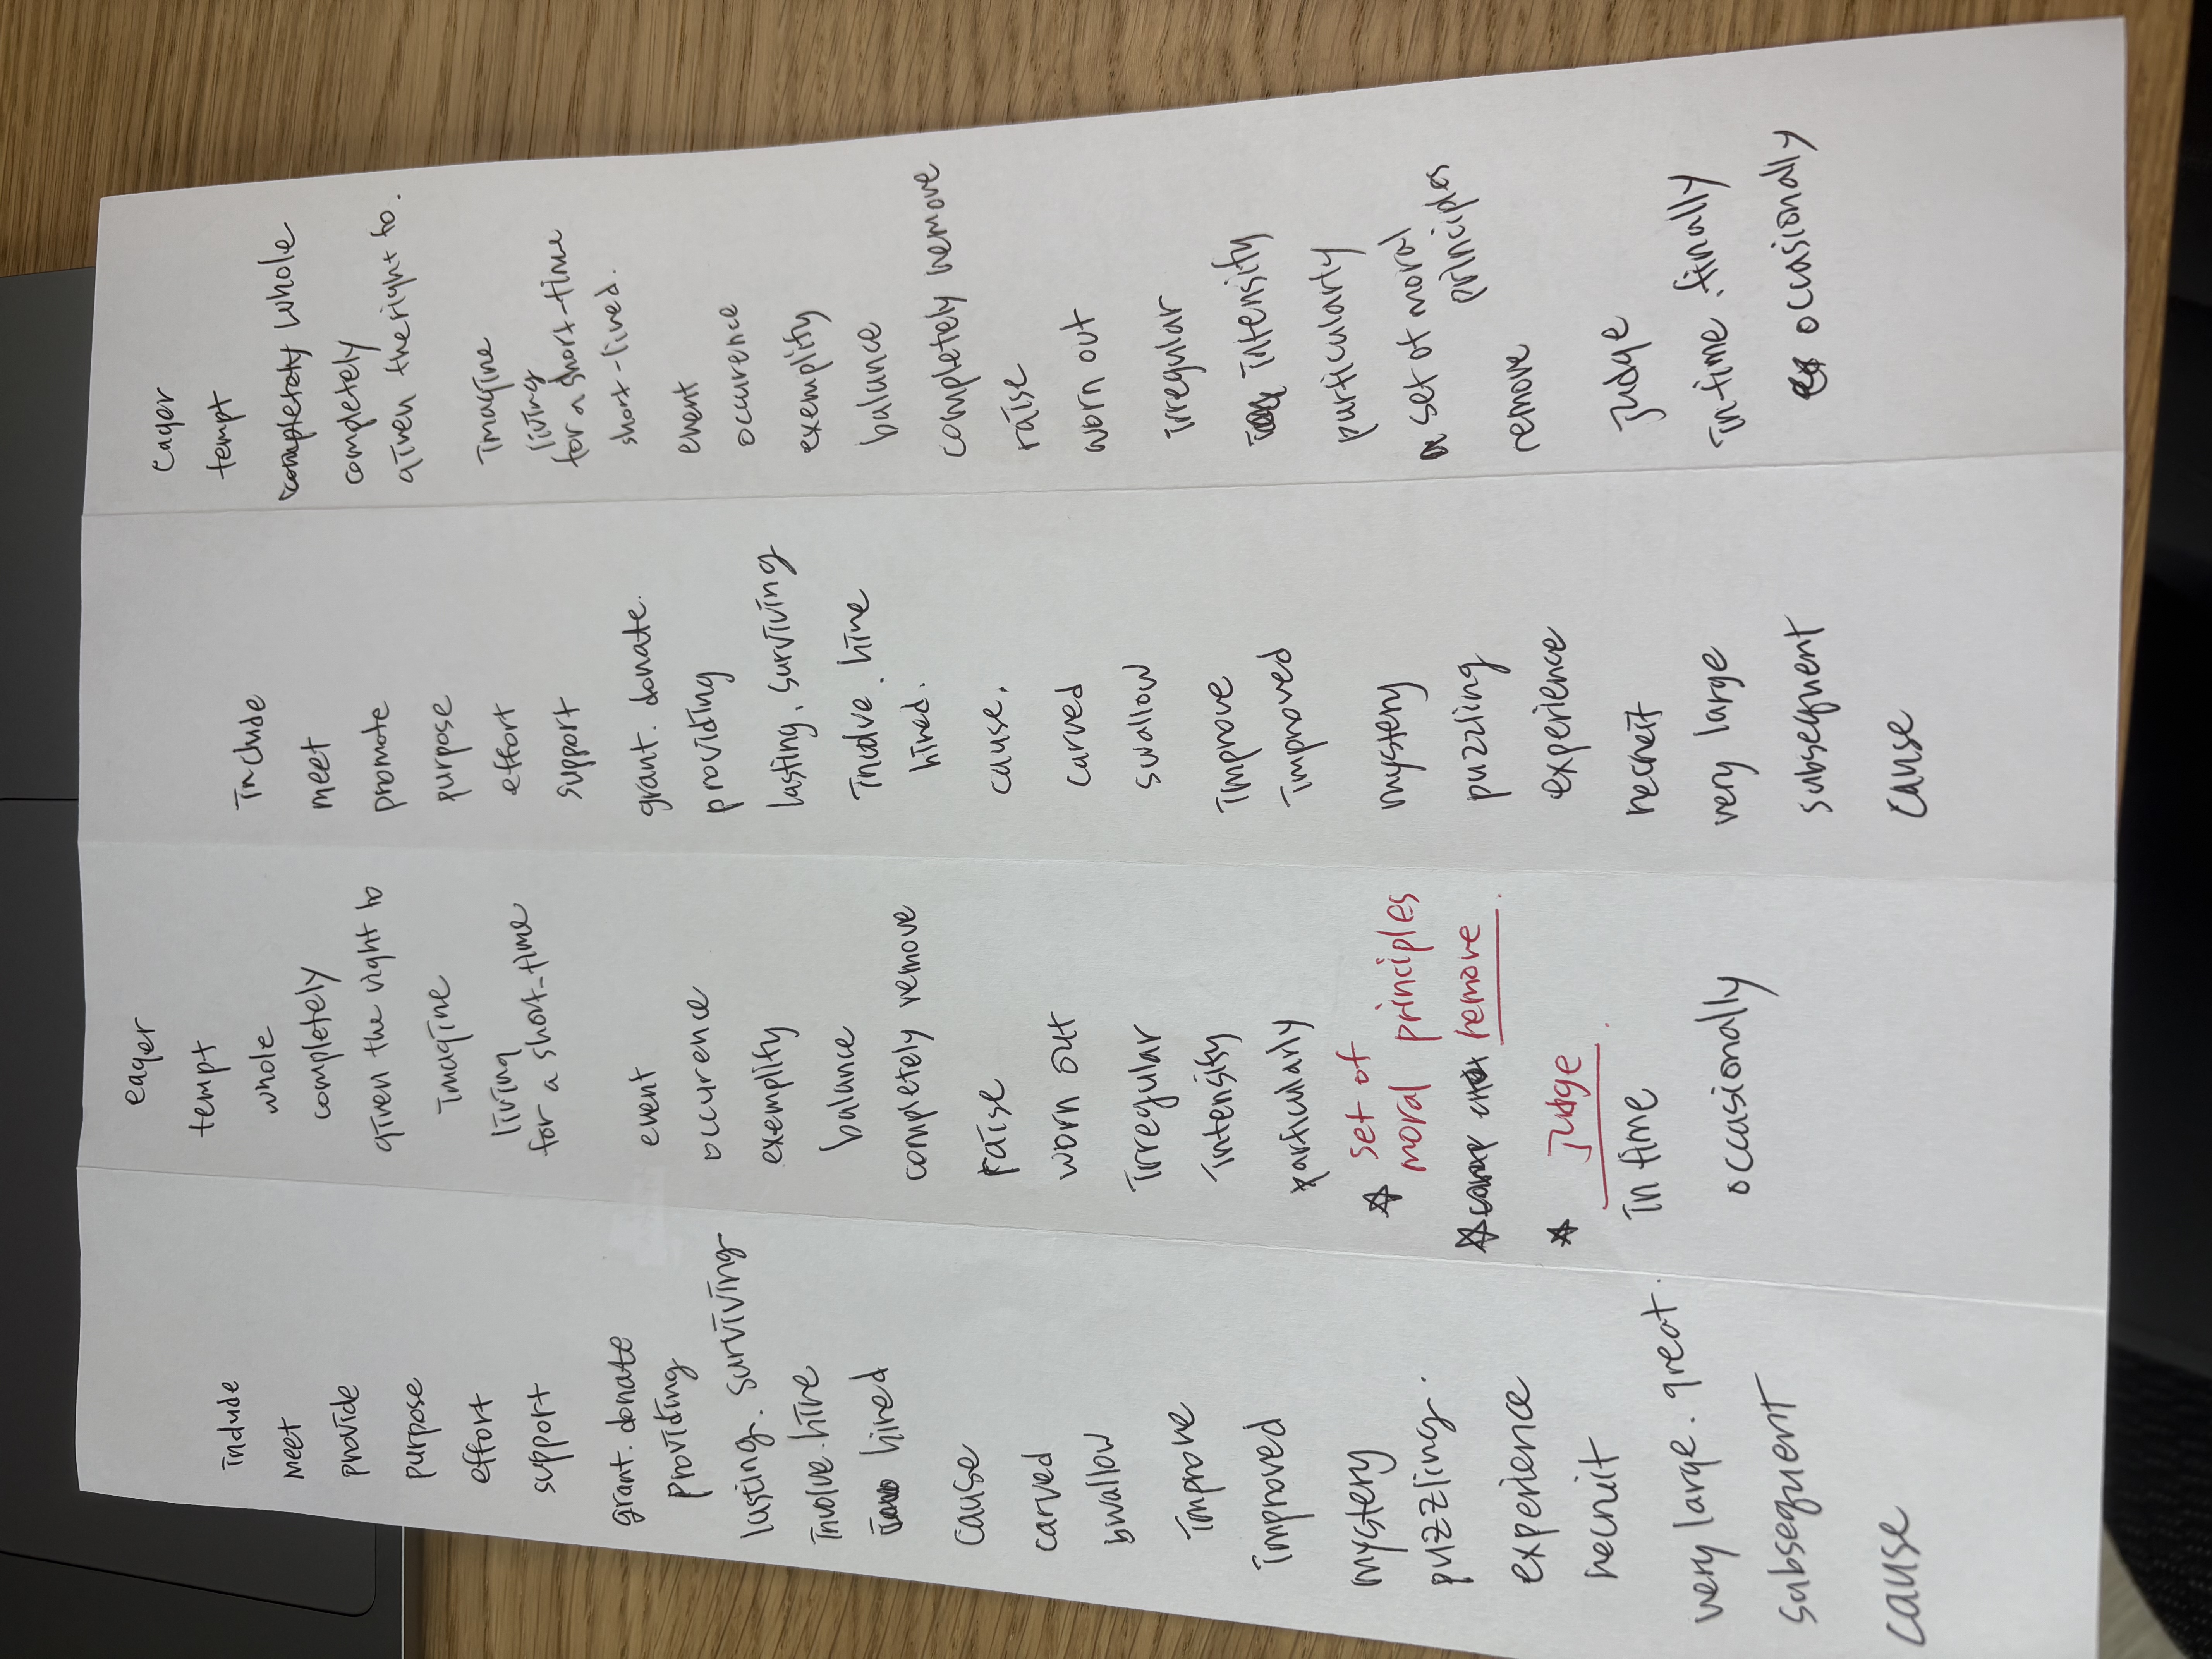 include
meet
provide
purpose
effort
support
grant. donate
providing
lasting. surviving
involve. hire
hired
cause
carved
swallow
improve
improved
mystery
puzzling.
experience
recruit
very large. great.
subsequent
cause
eager
tempt
whole
completely
given the right to
imagine
living
for a short-time
event
occurence
exemplify
balance
completely remove
raise
worn out
irregular
intensity
particularly
☆ set of
moral principles
☆ remove.
☆ Judge.
in time
occasionally
include
meet
promote
purpose
effort
support
grant. donate.
providing
lasting, surviving
involve. hire
hired.
cause.
carved
swallow
improve
improved
mystery
puzzling
experience
recruit
very large
subsequent
cause
eager
tempt
completely whole
completely
given the right to.
imagine
living
for a short-time
short-lived.
event
occurence
exemplify
balance
completely remove
raise
worn out
irregular
intensity
particularly
set of moral
principles
remove
Judge
in time. finally
occasionally